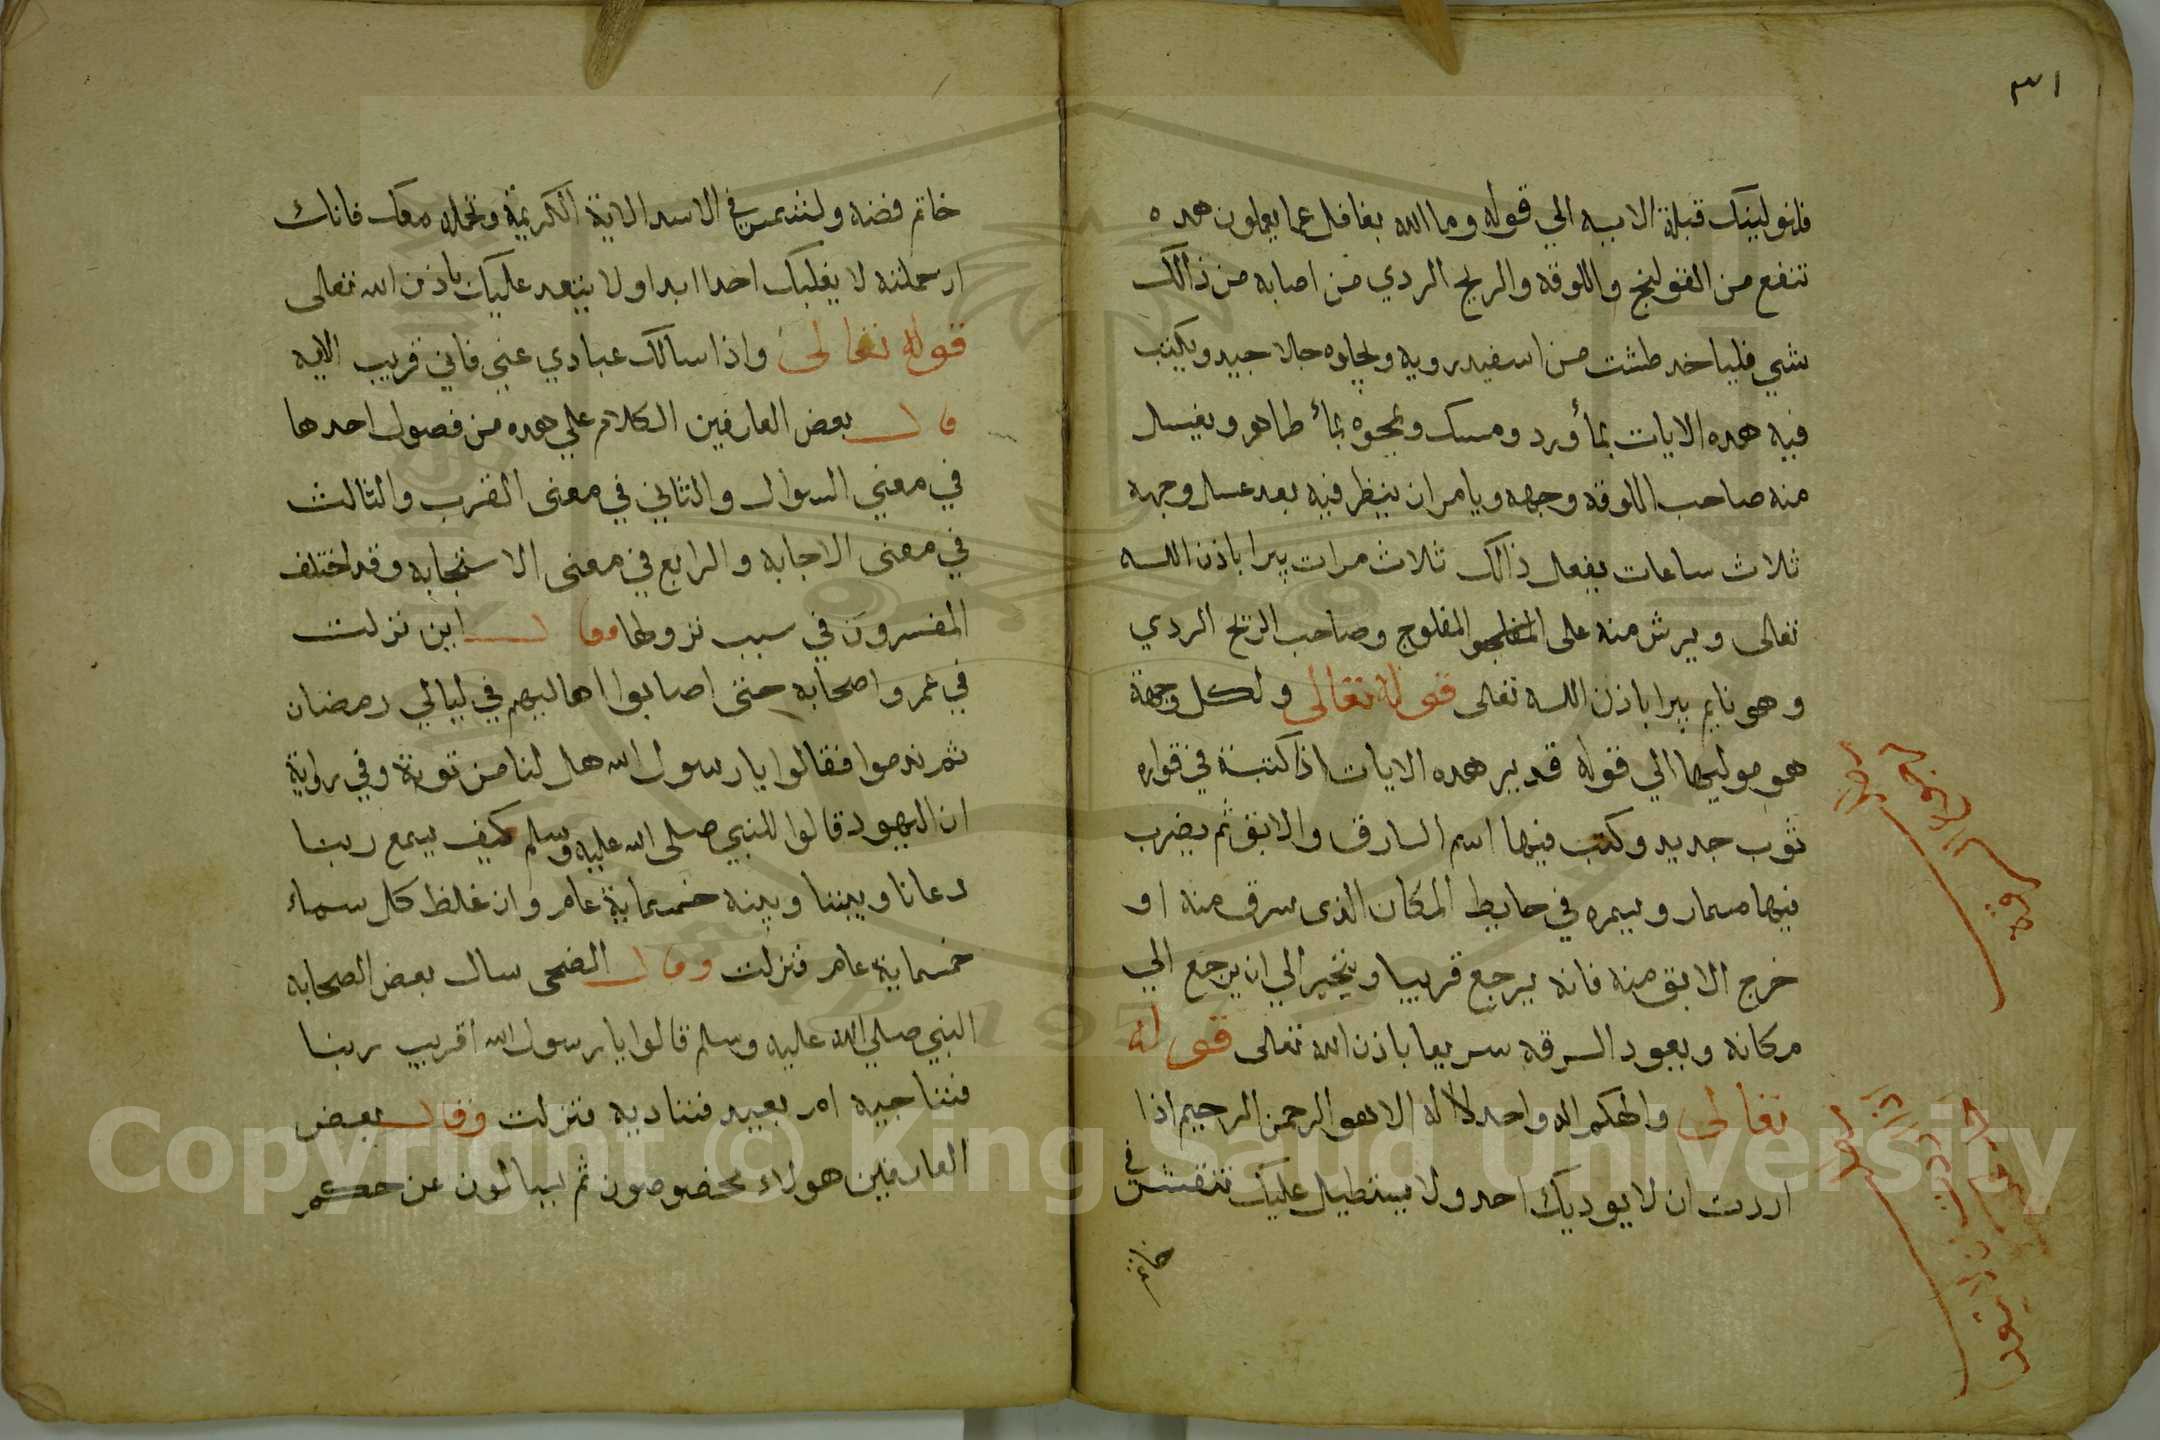 ٣١
فلنولينك قبلة الايه الي قوله وما الله بغافل عما يعملون هده
تنفع من القولنج واللوقه والريح الردي من اصابه من ذالك
شي فلياخد طشت من اسفيدرويه ويجلوه جلا جيد ويكتب
فيه هده الايات بمأ ورد ومسك ويمحوه بمأ طاهر ويغسل
منه صاحب اللوقه وجهه ويامر ان ينظر فيه بعد غسل وجهه
ثلاث ساعات يفعل ذالك ثلاث مرات يبرا باذن الله
تعالى ويرش منه على المفلوج وصاحب الريح الردي
وهو نايم يبرا باذن الله تعالى قوله تعالى ولكل وجهة
هو موليها الي قوله قدير هده الايات اذا كتبة في قواره
ثوب جديد وكتب فيها اسم السارق والابق ثم يضرب
فيها مسمار ويسمره في حايط المكان الذى سرق منه او
خرج الابق منه فانه يرجع قريبا ويتحير الي ان يرجع الي
مكانه ويعود السرقه سريعا باذن الله تعالى قوله
تعالى والهكم اله واحد لا اله الا هو الرحمن الرحيم اذا
اردت ان لا يوديك احد ولا يستطيل عليك تنقش في
خاتم
خاتم فضه ولتنقش في الاسد الاية الكريمة وتحمله معك فانك
ان حملته لا يغلبك احدا ابدا ولا يتعد عليك باذن الله تعالى
قوله تعالى واذا سالك عبادي عني فاني قريب الايه
قال بعض العارفين الكلام علي هده من فصول احدها
في معني السوال والثاني في معنى القرب والثالث
في معنى الاجابه والرابع في معنى الاستجابه وقد اختلف
المفسرون في سبب نزولها فقال اين نزلت
في عمر واصحابه حتى اصابوا اهاليهم في ليالي رمضان
ثم ندموا فقالوا يارسول الله هل لنا من توبة وفي رواية
ان اليهود قالوا للنبي صلى الله عليه وسلم كيف يسمع ربنا
دعانا وبيننا وبينه خمسماية عام وان غلظ كل سماء
خمسماية عام فنزلت وقال الضحى سال بعض الصحابه
النبي صلي الله عليه وسلم قالوا يارسول الله أقريب ربنا
فنناجيه ام بعيد فنناديه فنزلت وقال بعض
العارفين هولاء مخصوصون ثم يسالون عن حكم
Copyright © King Saud University